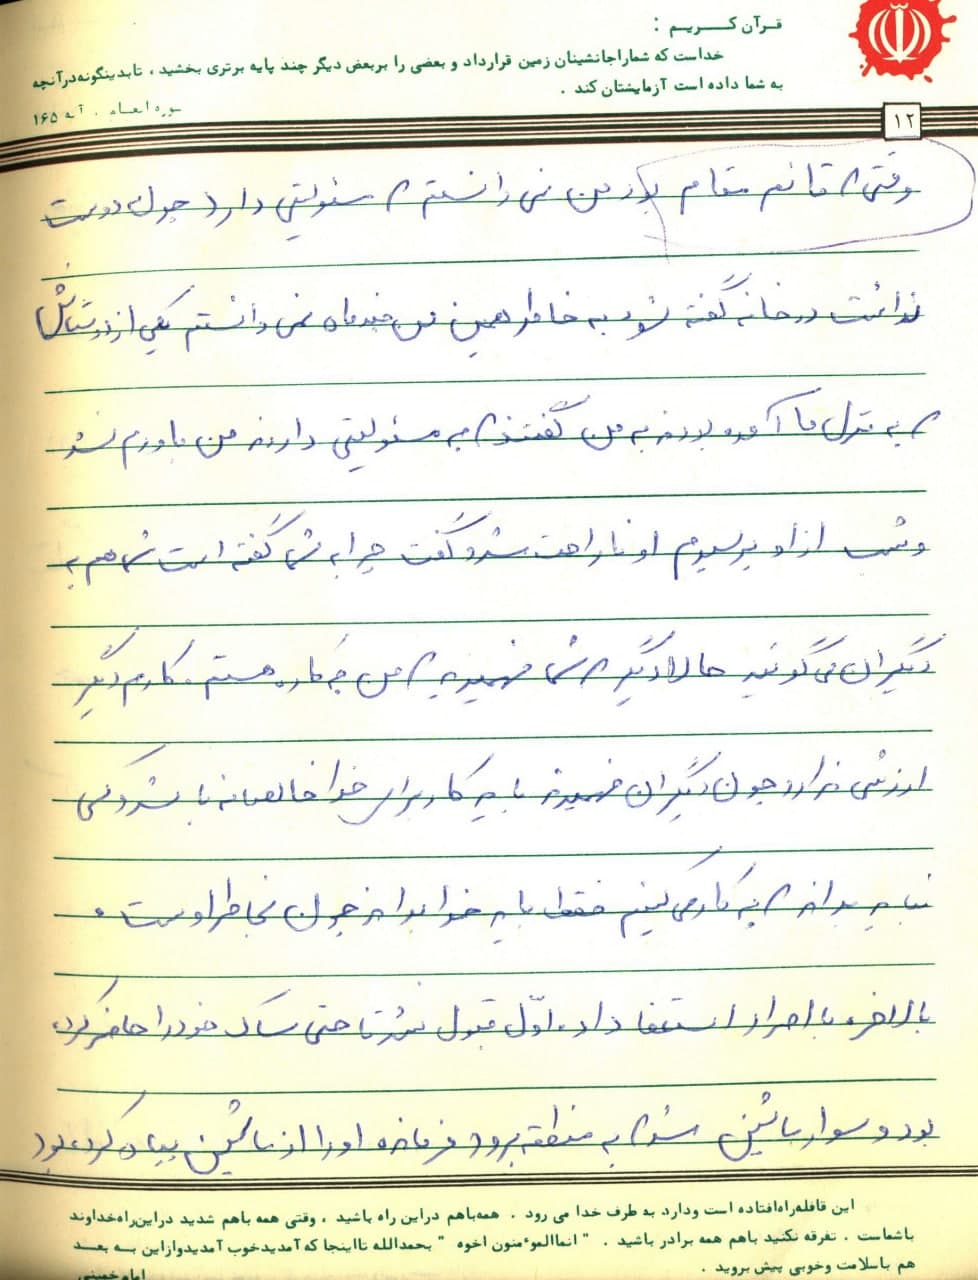 قرآن کریم :
خداست که شما را جانشینان زمین قرارداد و بعضی را بربعض دیگر چند پایه برتری بخشید ، تا بدینگونه در آنچه
به شما داده است آزمایشتان کند .
سوره انعام . آیه ۱۶۵
۱۲
وقتی که قائم مقام بود من نمی دانستم که مسئولیتی دارد چون دوست
نداشت در خانه گفته شود به خاطر همین من چند ماه نمی دانستم یکی از دوستانش
که به منزل ما آمده بودند به من گفتند که چه مسئولیتی دارند من باورم نشد
و شب از او پرسیدم او ناراحت شد و گفت چرا به شما گفته است شما هم به
دیگران می گوئید حالا دیگر که شما فهمیدید که من چه کاره هستم. کارم دیگر
ارزشی ندارد چون دیگران فهمیدند باید کار برای خدا خالصانه باشد و کسی
نباید بداند که چه کار می کنیم فقط باید خدا بداند چون بخاطر اوست و
بالاخره با اصرار استعفا داد، اوّل قبول نشد تا حتی ساک خود را حاضر کرده
بود و سوار ماشین شد که به منطقه برود فرمانده او را از ماشین پیاده کرده بود
این قافله راه افتاده است و دارد به طرف خدا می رود . همه باهم در این راه باشید ، وقتی همه باهم شدید در این راه خداوند
با شماست . تفرقه نکنید باهم همه برادر باشید . " انما المؤمنون اخوه " بحمدالله تا اینجا که آمدید خوب آمدید و از این به بعد
هم با سلامت و خوبی پیش بروید .
امام خمینی